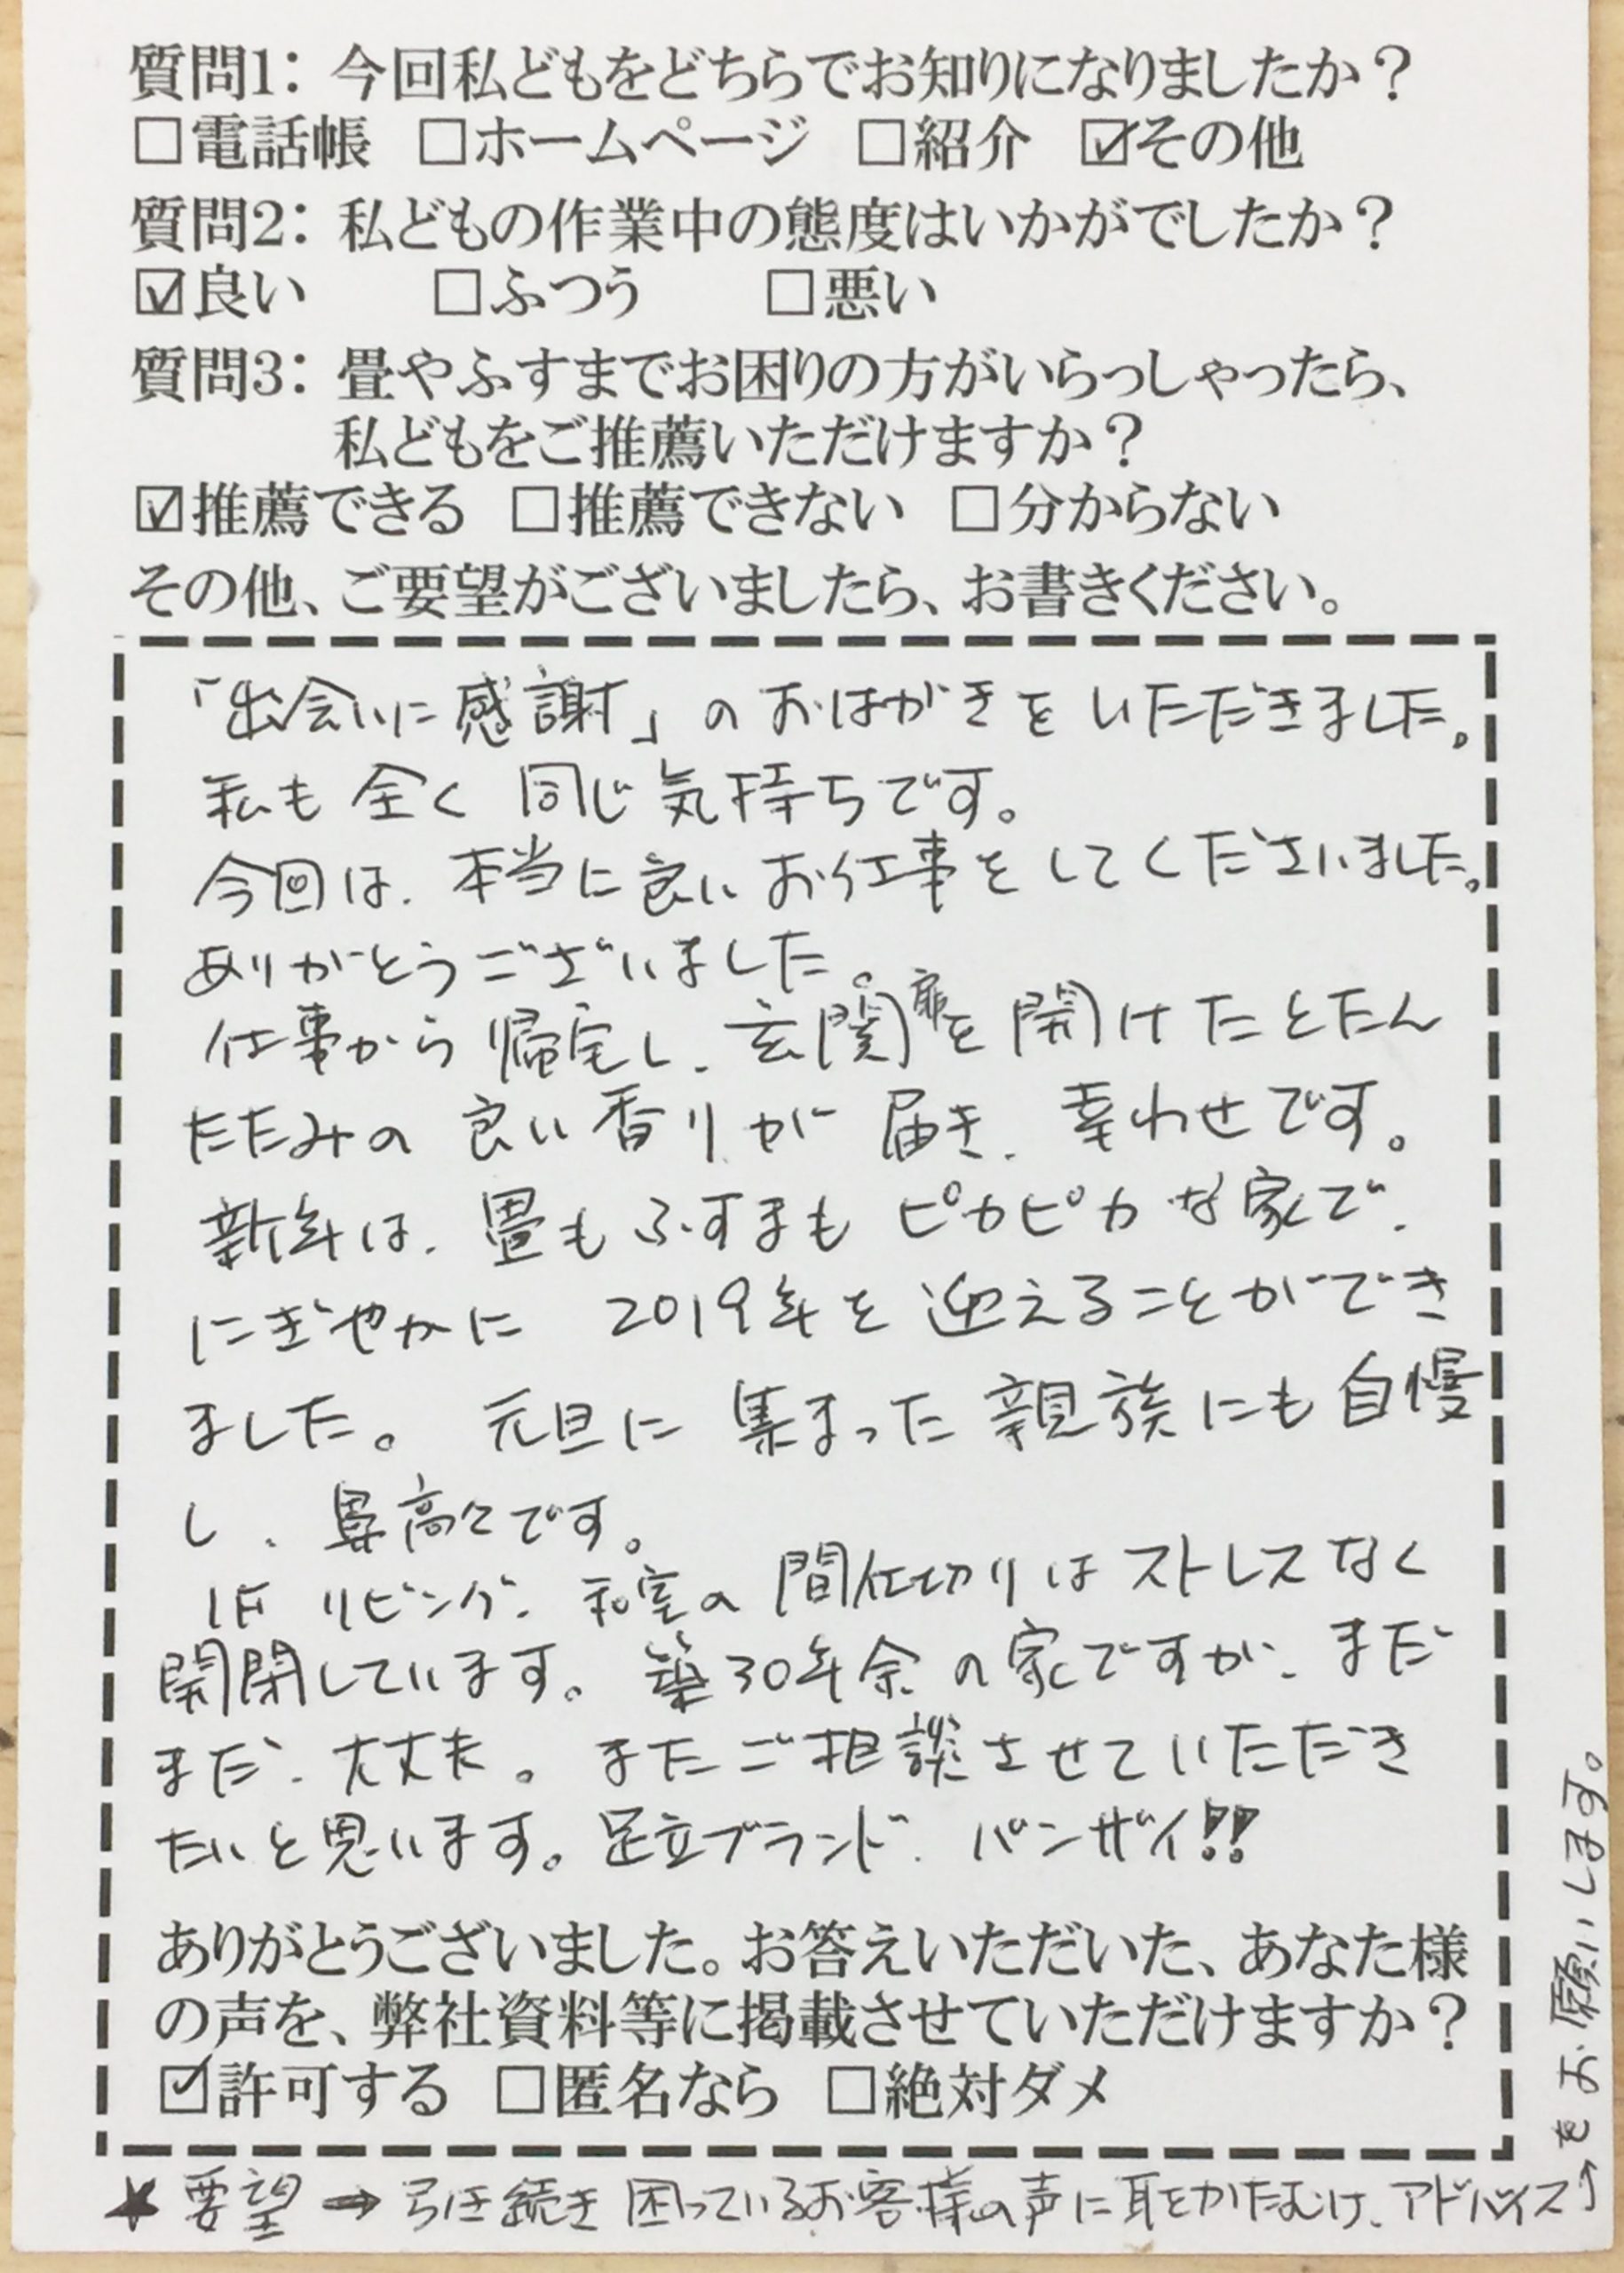 質問1: 今回私どもをどちらでお知りになりましたか？
□電話帳 □ホームページ □紹介 ☑その他
質問2: 私どもの作業中の態度はいかがでしたか？
☑良い □ふつう □悪い
質問3: 畳やふすまでお困りの方がいらっしゃったら、
私どもをご推薦いただけますか？
☑推薦できる □推薦できない □分からない
その他、ご要望がございましたら、お書きください。
「出会いに感謝」のおはがきをいただきました。
私も全く同じ気持ちです。
今回は、本当に良いお仕事をしてくださいました。
ありがとうございました。
仕事から帰宅し、玄関扉を開けたとたん
たたみの良い香りが届き、幸わせです。
新年は、畳もふすまもピカピカな家で、
にぎやかに 2019年を迎えることができ
ました。 元旦に集まった親族にも自慢
し、鼻高々です。
1F リビング、和室の間仕切りはストレスなく
開閉しています。築30年余の家ですが、まだ
まだ、大丈夫。またご相談させていただき
たいと思います。足立ブランド、バンザイ!!
ありがとうございました。お答えいただいた、あなた様
の声を、弊社資料等に掲載させていただけますか？
☑許可する □匿名なら □絶対ダメ
★要望 ➡ 引き続き困っているお客様の声に耳をかたむけ、アドバイス
をお願いします。